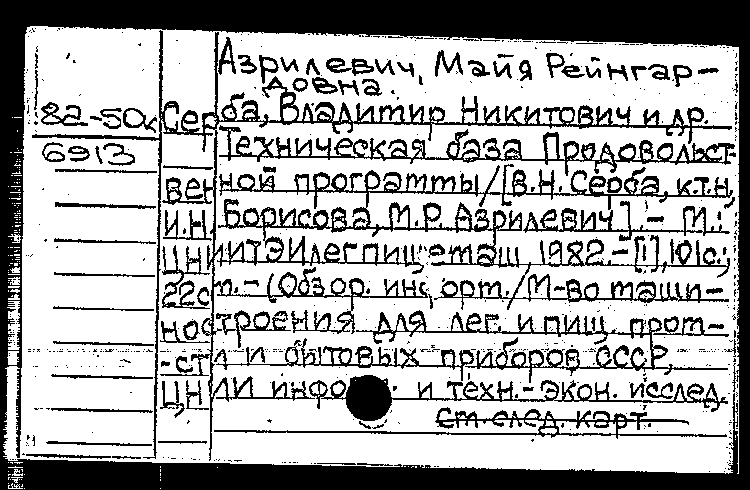 Азрилевич, Майя Рейнгар-
довна.
82-50к Серба, Владимир Никитович и др.
6913 Техническая база Продовольст-
венной программы/[В.Н. Серба, к.т.н,
И.Н. Борисова, М.Р. Азрилевич].- М.:
ЦНИИТЭИлегпищемаш, 1982.-[1],101с.;
22см.-(Обзор. информ./М-во маши-
ностроения для лег. и пищ. пром-
-сти и бытовых приборов СССР,
ЦНИИ информ. и техн.-экон. исслед.
см. след. карт.